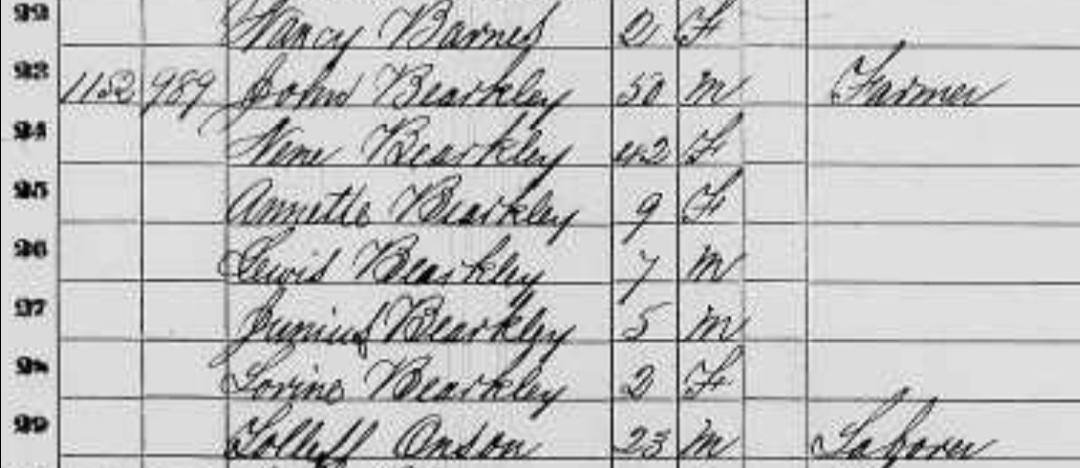 22 Nancy Barnes 2 F
23 1152 989 John Bearkley 50 m Farmer
24 Bearkley 42 F
25 Annette Bearkley 9 F
26 Lewis Bearkley 7 m
27 Junius Bearkley 5 m
28 Lovine Bearkley 2 F
29 Onson 23 m Laborer